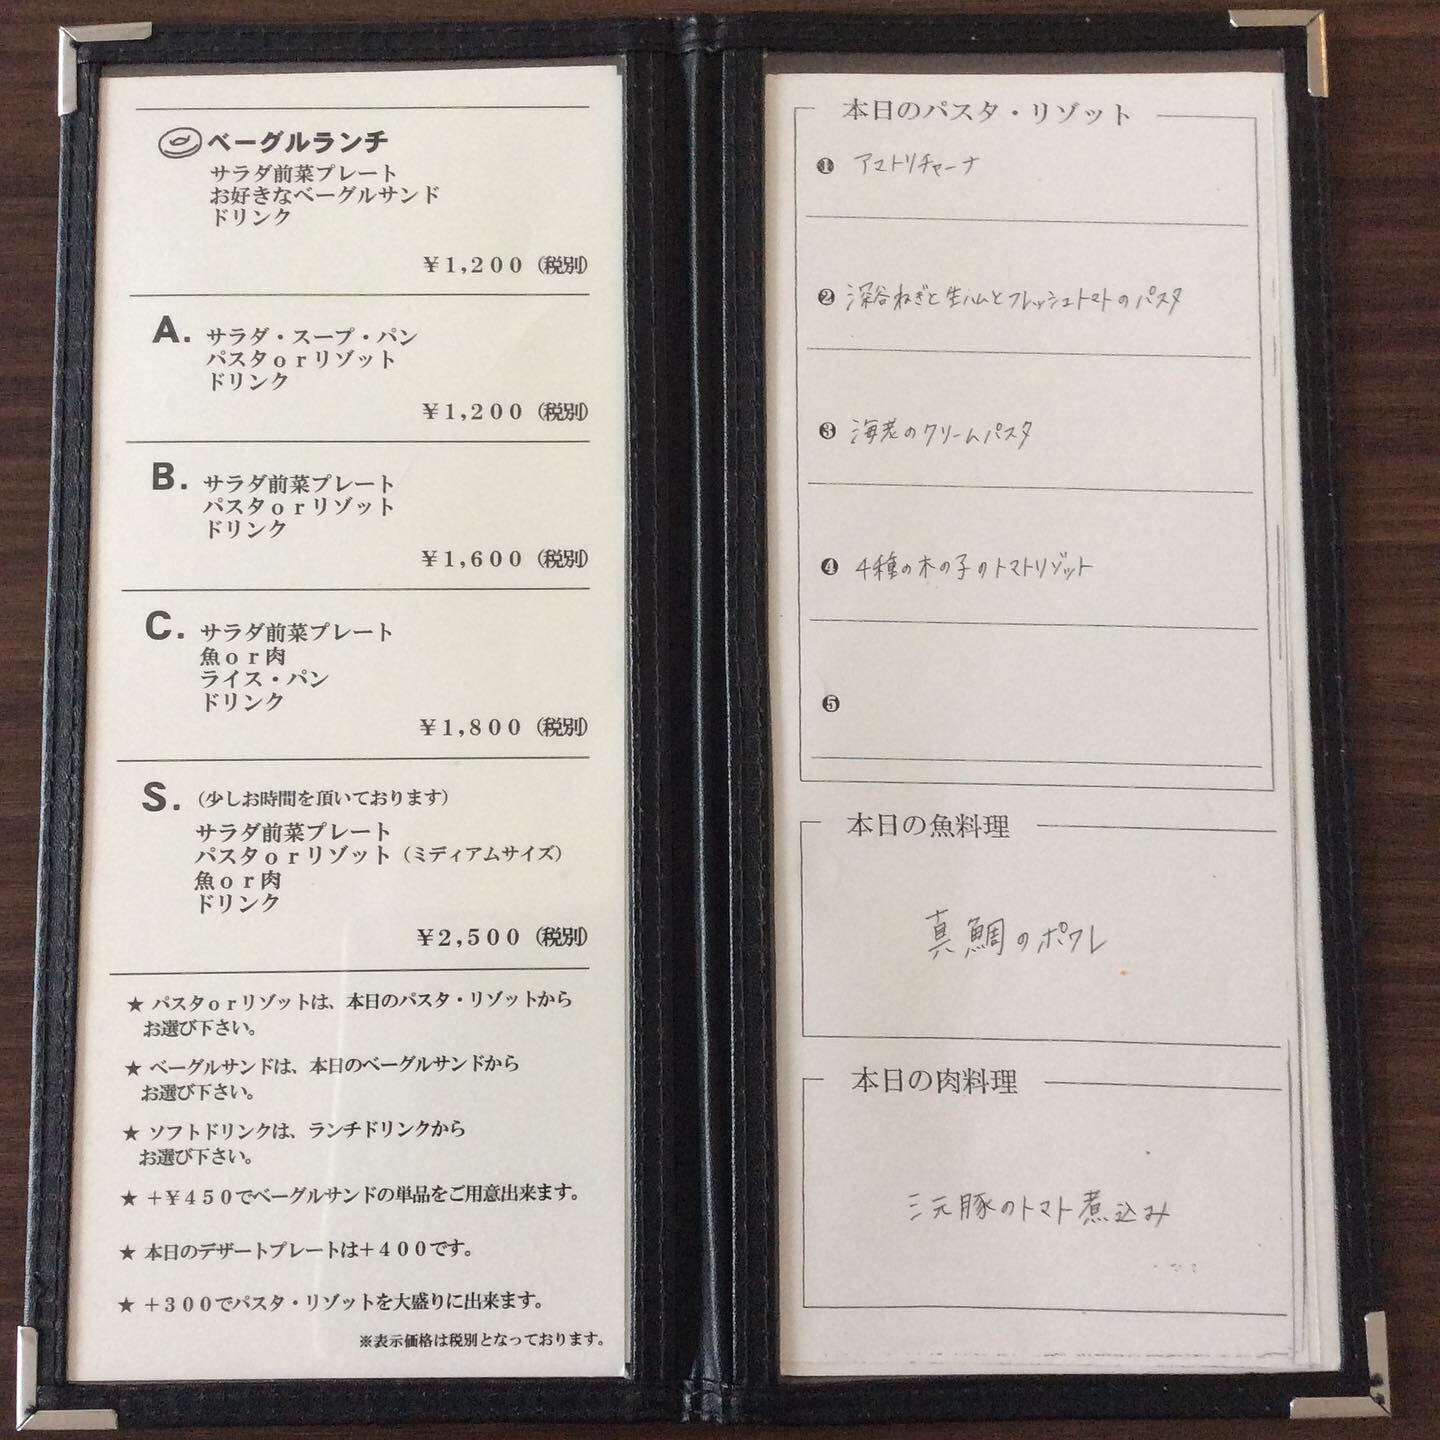 ベーグルランチ
サラダ前菜プレート
お好きなベーグルサンド
ドリンク
¥1,200（税別）
A.
サラダ・スープ・パン
パスタorリゾット
ドリンク
¥1,200（税別）
B.
サラダ前菜プレート
パスタorリゾット
ドリンク
¥1,600（税別）
C.
サラダ前菜プレート
魚or肉
ライス・パン
ドリンク
¥1,800（税別）
S.（少しお時間を頂いております）
サラダ前菜プレート
パスタorリゾット（ミディアムサイズ）
魚or肉
ドリンク
¥2,500（税別）
★ パスタorリゾットは、本日のパスタ・リゾットから
お選び下さい。
★ ベーグルサンドは、本日のベーグルサンドから
お選び下さい。
★ ソフトドリンクは、ランチドリンクから
お選び下さい。
★ +¥450でベーグルサンドの単品をご用意出来ます。
★ 本日のデザートプレートは+400です。
★ +300でパスタ・リゾットを大盛りに出来ます。
※表示価格は税別となっております。
本日のパスタ・リゾット
❶ アマトリチャーナ
❷ 深谷ねぎと生ハムとフレッシュトマトのパスタ
❸ 海老のクリームパスタ
❹ 4種の木の子のトマトリゾット
❺
本日の魚料理
真鯛のポワレ
本日の肉料理
三元豚のトマト煮込み